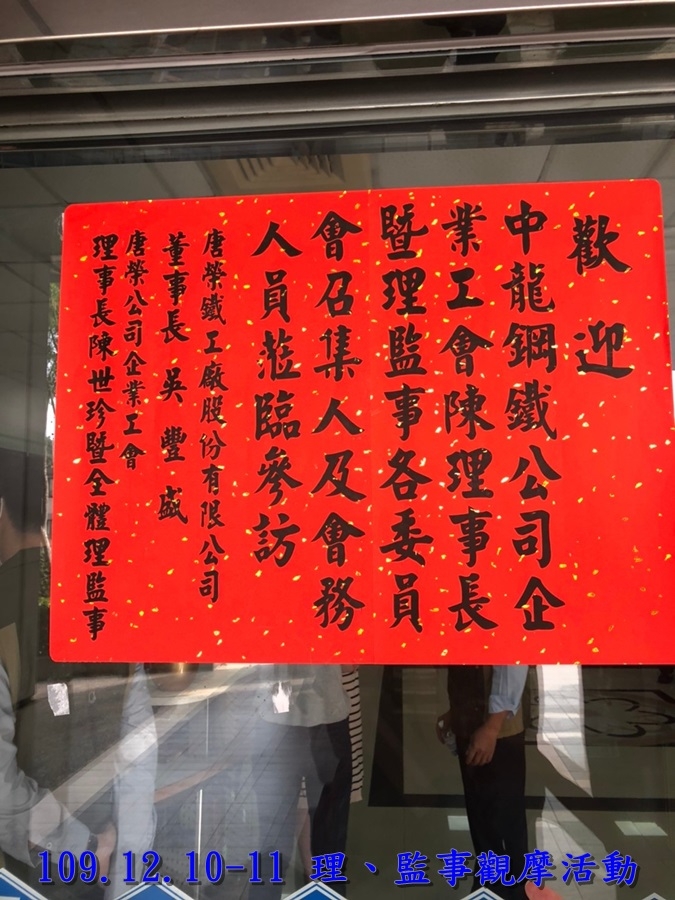 歡迎
中龍鋼鐵公司企
業工會陳理事長
暨理監事各委員
會召集人及會務
人員蒞臨參訪
唐榮鐵工廠股份有限公司
董事長 吳豐盛
唐榮公司企業工會
理事長陳世珍暨全體理監事
109.12.10-11 理、監事觀摩活動